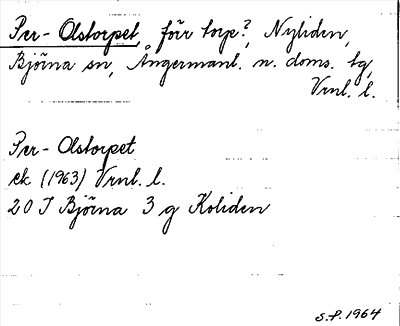 Per-Olstorpet, förr torp?, Nyliden,
Björna sn, Ångermanl. n. doms. tg,
Vrnl. l.
Per-Olstorpet
ek (1963) Vrnl. l.
20 I Björna 3 g Koliden
S.P. 1964